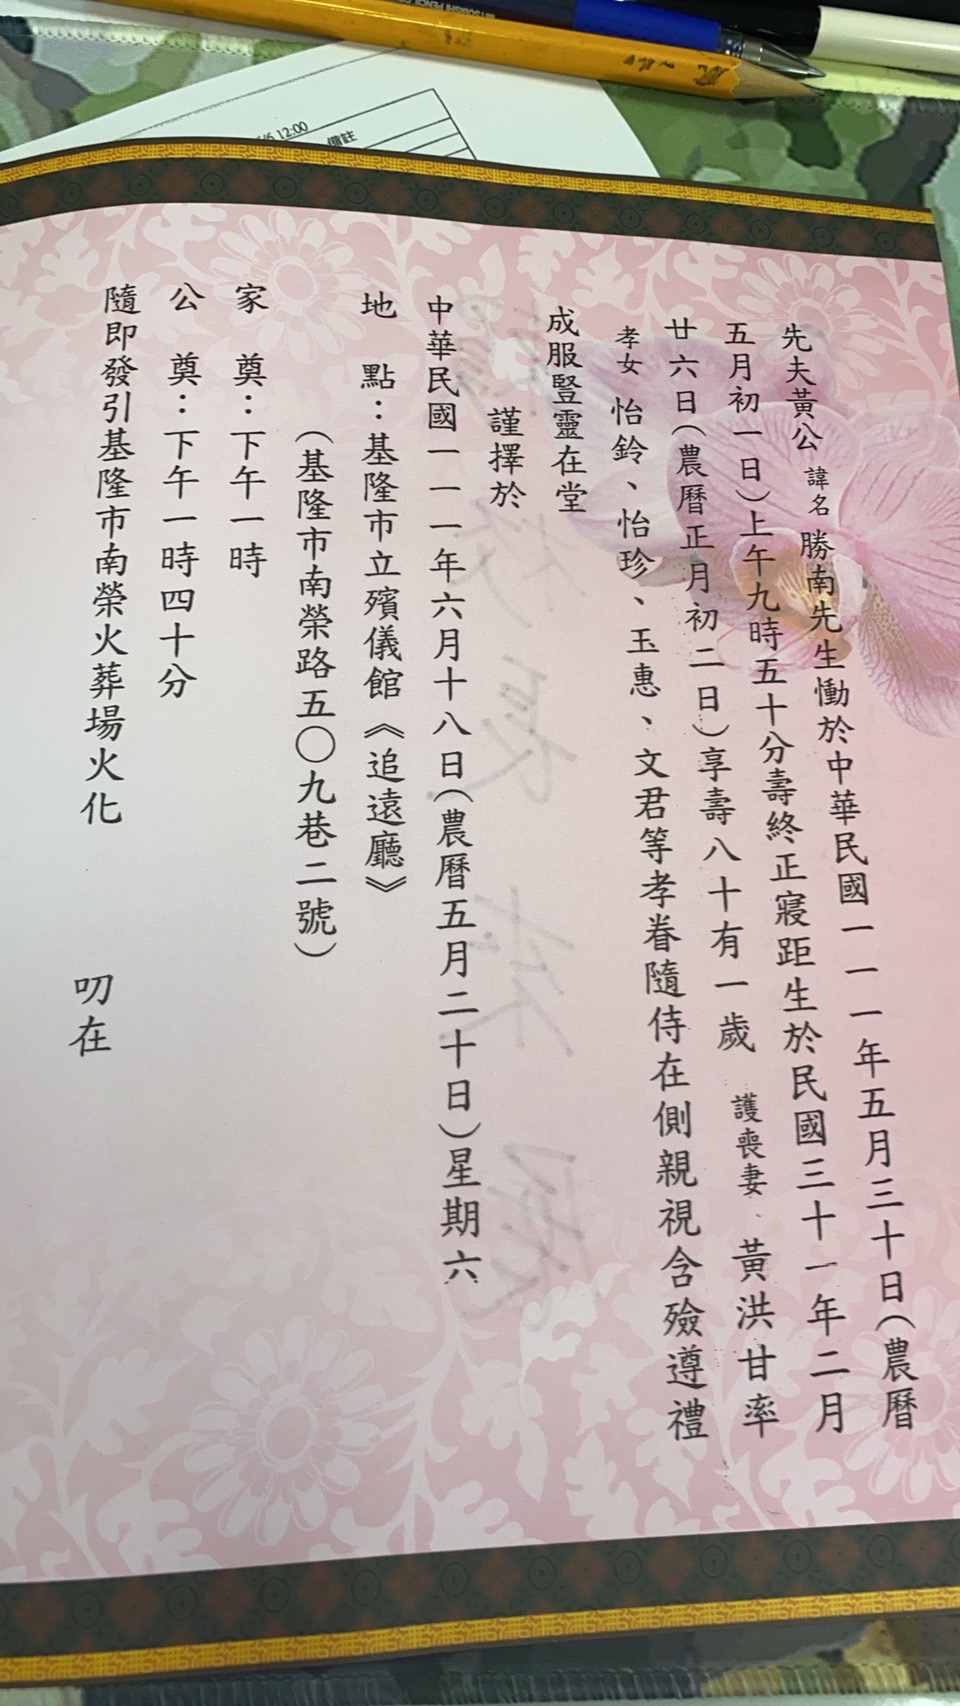 先夫黃公諱名勝南先生慟於中華民國一一一年五月三十日（農曆
五月初一日）上午九時五十分壽終正寢距生於民國三十一年二月
廿六日（農曆正月初二日）享壽八十有一歲 護喪妻、黃洪甘率
孝女 怡鈴、怡珍、玉惠、文君等孝眷隨侍在側親視含殮遵禮
成服豎靈在堂
謹擇於
中華民國一一一年六月十八日（農曆五月二十日）星期六
地 點：基隆市立殯儀館《追遠廳》
（基隆市南榮路五〇九巷二號）
家 奠：下午一時
公 奠：下午一時四十分
隨即發引基隆市南榮火葬場火化
叨在
12:00
備註